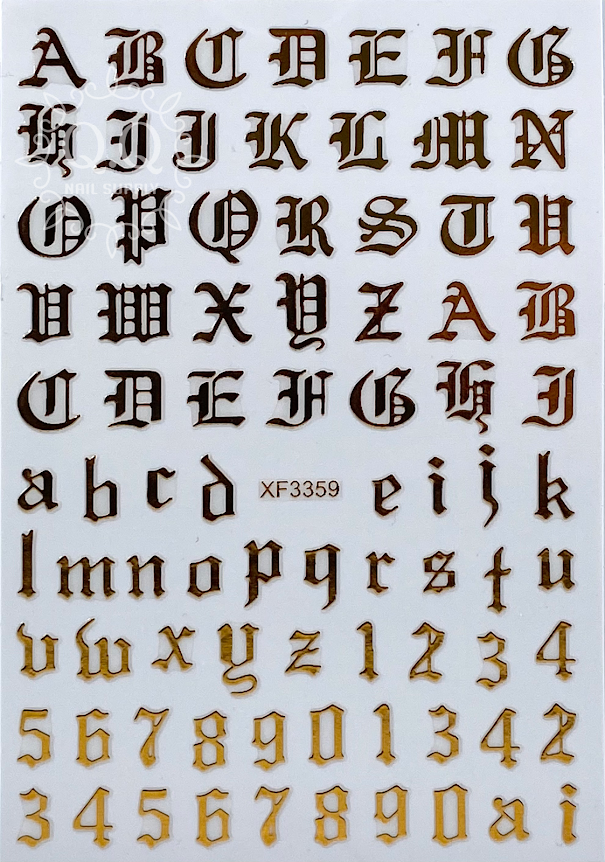 A B C D E F G
H I J K L M N
O P Q R S T U
V W X Y Z A B
C D E F G H I
a b c d XF3359 e i j k
l m n o p q r s t u
v w x y z 1 2 3 4
5 6 7 8 9 0 1 3 4 2
3 4 5 6 7 8 9 0 a i
QQ
NAIL SUPPLY